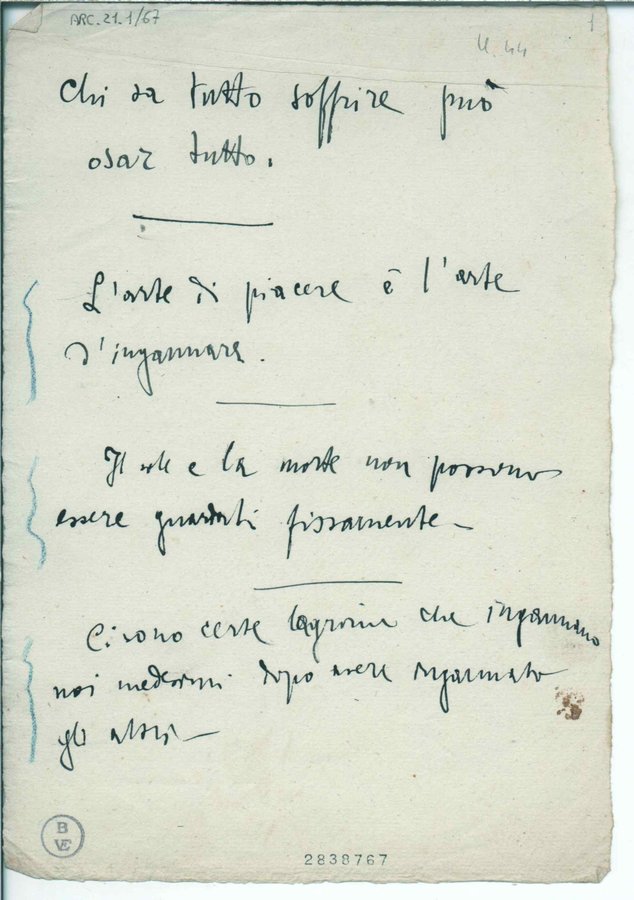 ARC.21.1/67
Chi sa tutto soffrire può
osar tutto.
L'arte di piacere è l'arte
d'ingannare.
Il sole e la morte non possono
essere guardati fissamente—
Ci sono certe lagrime che ingannano
noi medesimi dopo avere ingannato
gli altri—
B
VE
2838767